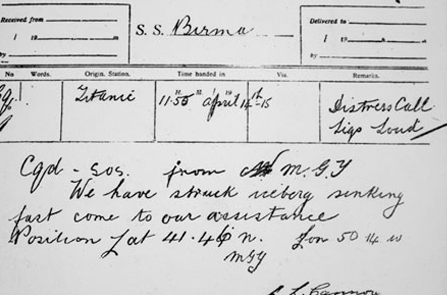 Received from
Delivered to
S. S. Birma
1 19
1 19
by
by
No Words. Origin. Station. Time handed in Via. Remarks.
Titanic 11·50 H. M. April 14th-15 Distress Call
Sigs Loud
Cqd - SOS. from M.G.Y
We have struck iceberg sinking
fast come to our assistance
Position Lat 41.46 n. Lon 50.14 w
MGY